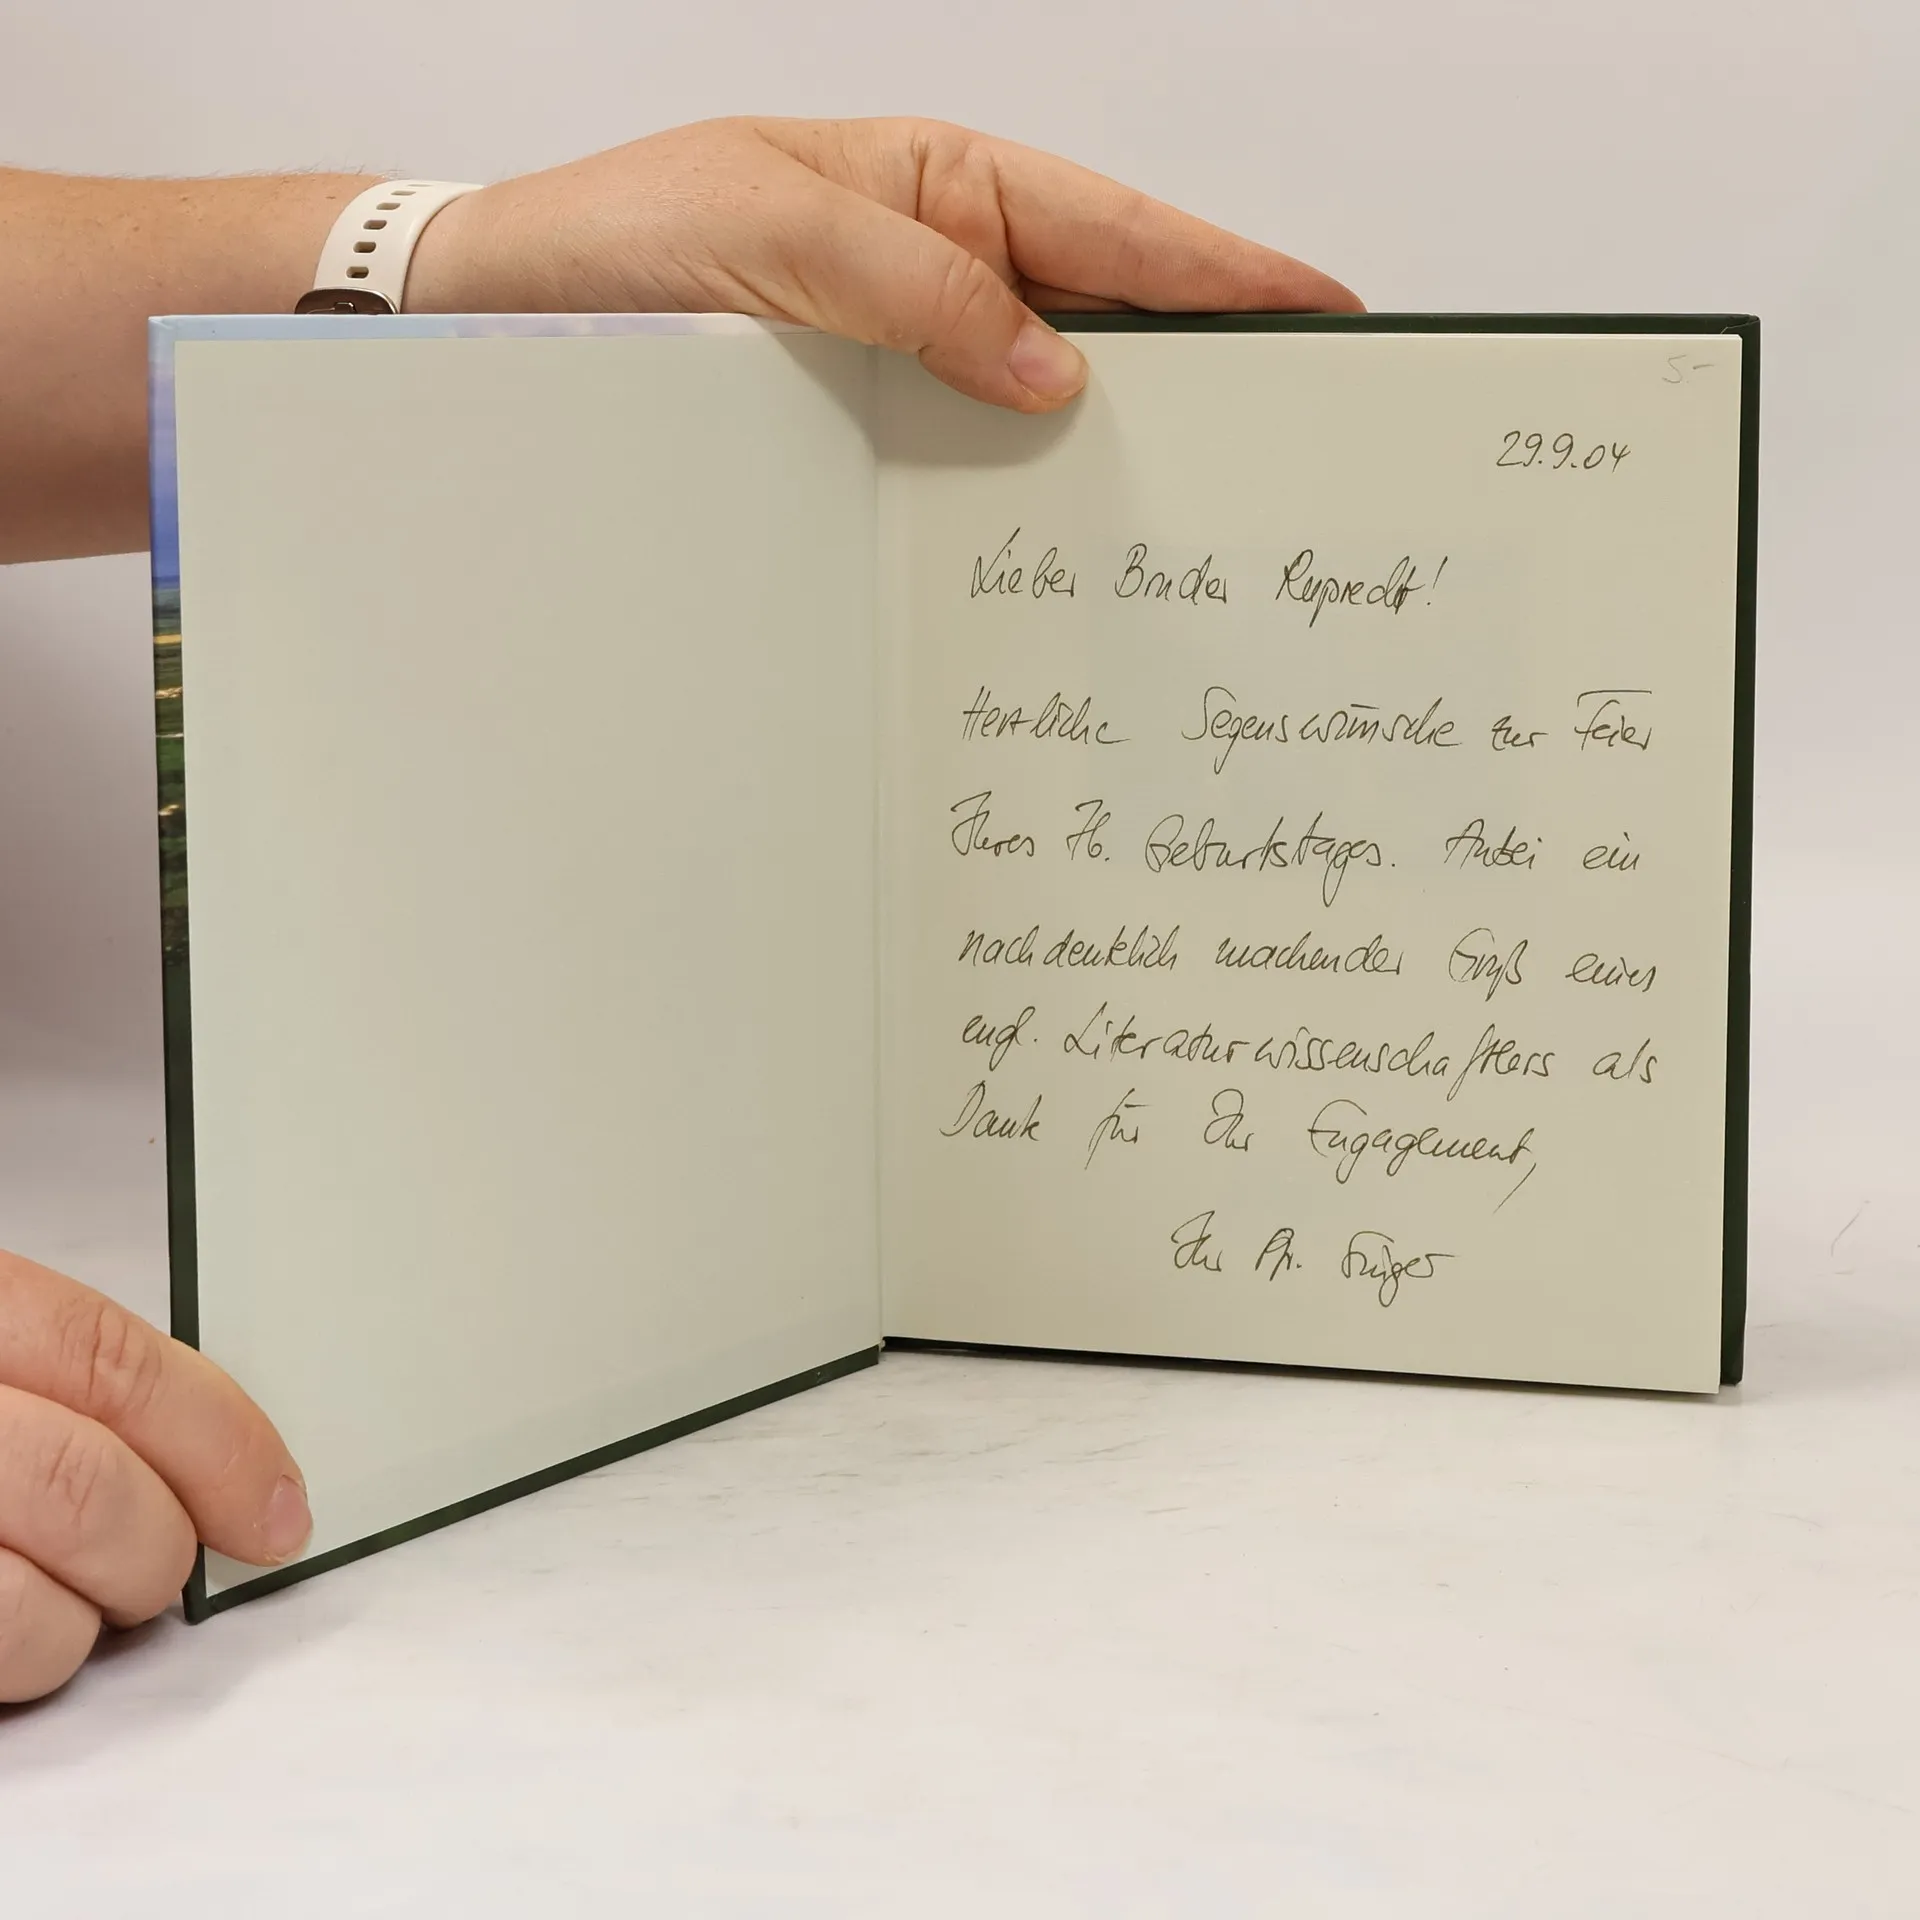 5.-
29.9.04
Lieber Bruder Ruprecht!
Herzliche Segenswünsche zur Feier
Ihres 76. Geburtstages. Anbei ein
nachdenklich machender Gruß eines
engl. Literaturwissenschaftlers als
Dank für Ihr Engagement,
Ihr Pfr.